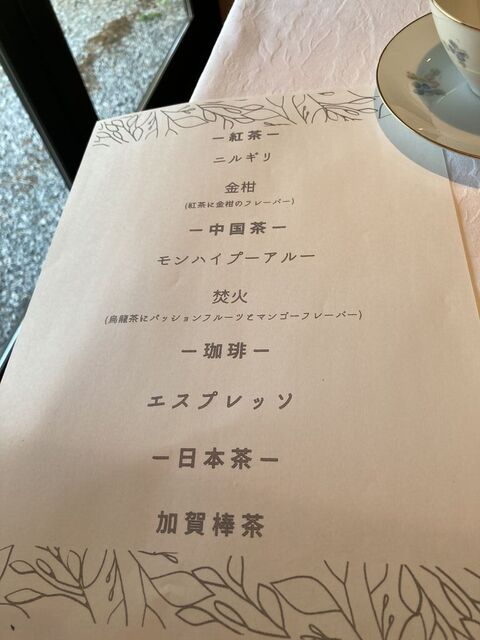 ー紅茶ー
ニルギリ
金柑
(紅茶に金柑のフレーバー)
ー中国茶ー
モンハイプーアルー
焚火
(烏龍茶にパッションフルーツとマンゴーフレーバー)
ー珈琲ー
エスプレッソ
ー日本茶ー
加賀棒茶